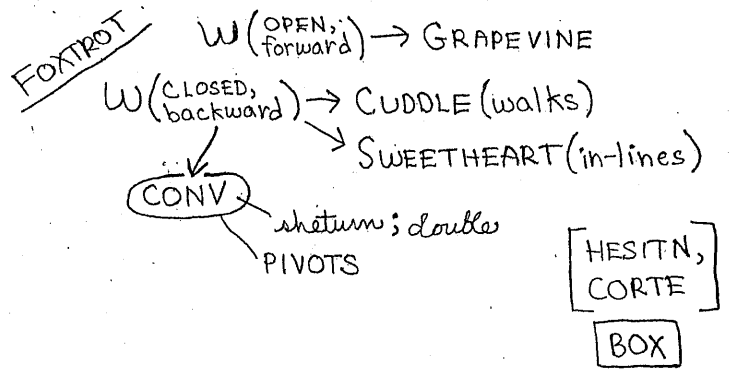 FOXTROT
W (OPEN, forward) → GRAPEVINE
W (CLOSED, backward) → CUDDLE (walks)
SWEETHEART (in-lines)
CONV
sheturn; double
PIVOTS
[HESITN,
CORTE]
BOX